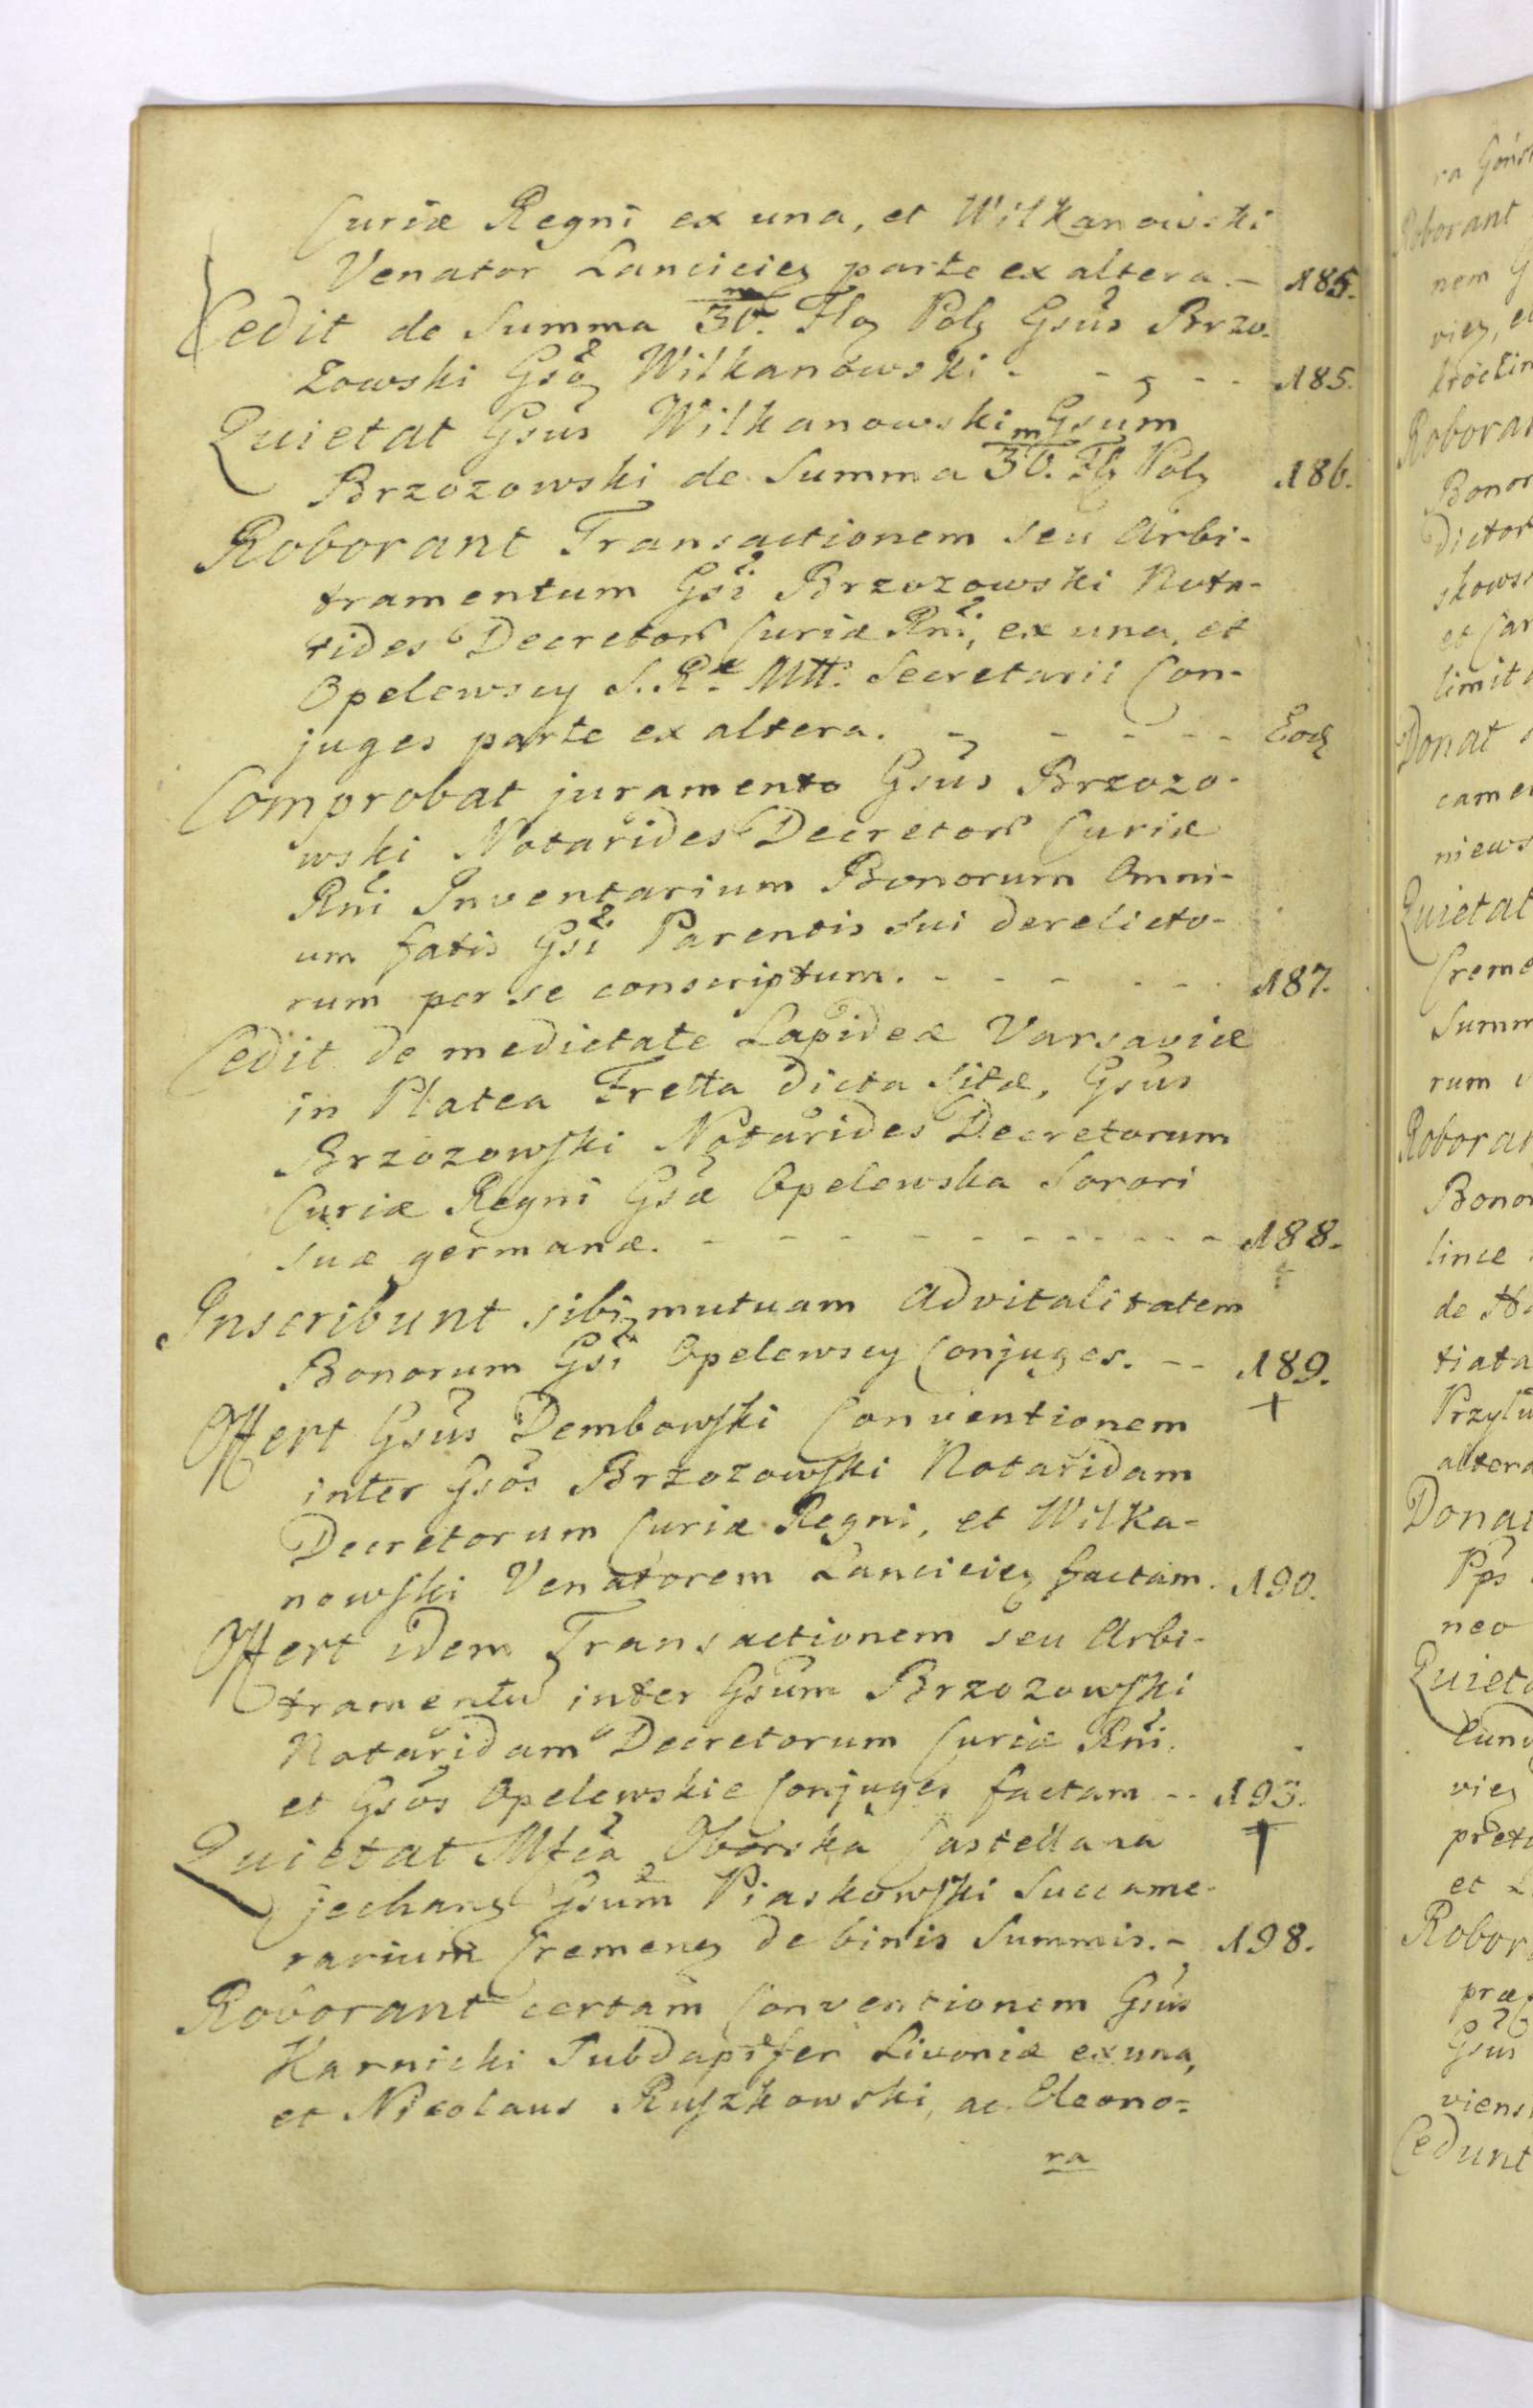 Curiæ Regni ex una, et Wilkanowski
Venator Lancicieg parte ex altera. – 185.
Cedit de Summa 30.m Flog Polg Gsus Brzo-
zowski Gsog Wilkanowski - - - - - 185.
Quietat Gsus Wilkanowski Gsum
Brzozowski de Summa 30.m Flg Polg 186.
Roborant Transactionem seu Arbi-
tramentum Gsi Brzozowski Nota-
rides Decretor Curiæ Rni, ex una, et
Opelewscy S. R. Mtt. Secretarii Con-
juges parte ex altera. - - - - - Eod
Comprobat juramento Gsus Brzozo-
wski Notarides Decretor Curiæ
Rni Inventarium Bonorum Omni-
um fatis Gsi Parentis sui derelicto-
rum per se conscriptum. - - - - - 187.
Cedit de medietate Lapideæ Varsaviæ
in Platea Fretta dicta sitæ, Gsus
Brzozowski Notarides Decretorum
Curiæ Regni Gsæ Opelewska Sorori
suæ germanæ. - - - - - - - - - - 188.
Inscribunt sibi mutuam Advitalitatem
Bonorum Gsi Opelewscy Conjuges. - - 189.
Offert Gsus Dembowski Conventionem
inter Gsos Brzozowski Notaridam
Decretorum Curiæ Regni, et Wilka-
nowski Venatorem Lancicieg factam. 190.
Offert idem Transactionem seu Arbi-
tramentu inter Gsum Brzozowski
Notaridam Decretorum Curiæ Rni.
et Gsos Opelewskie Conjuges factam - - 193.
Quietat Mfca Oborska Castellana
Ciechang Gsum Piaskowski Succame-
rarium Cremeng de binis Summis. - 198.
Roborant certam Conventionem Gsus
Karnicki Subdapifer Livoniæ ex una,
et Nicolaus Ruszkowski, ac Eleono-
ra